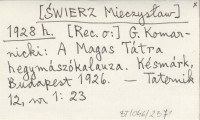 [ŚWIERZ Mieczysław]
1928 h. [Rec. o:] G. Komar-
nicki: A Magas Tátra
hegymászókalauza. Késmárk,
Budapest 1926. — Taternik
12, nr 1: 23